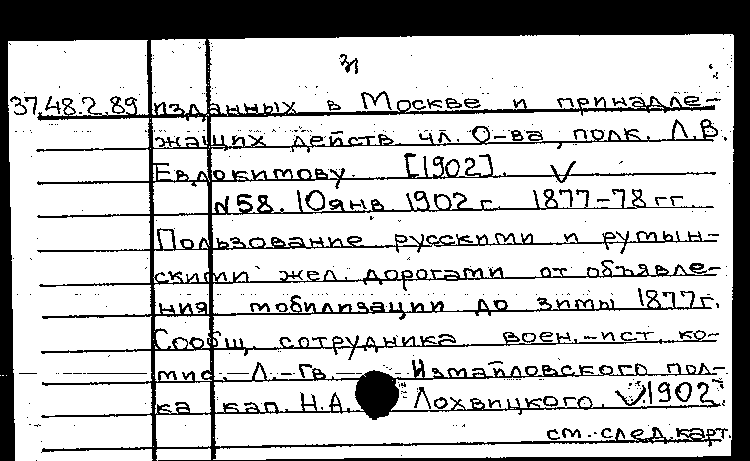 31
37.48.2.89 изданных в Москве и принадле-
жащих действ. чл. О-ва, полк. Л.В.
Евдокимову. [1902].
N 58. 10 янв 1902 г. 1877-78 гг.
Пользование русскими и румын-
скими жел. дорогами от объявле-
ния мобилизации до зимы 1877г.
Сообщ. сотрудника воен.-ист. ко-
мис. Л.-Гв. Измайловского пол-
ка кап. Н.А. Лохвицкого. 1902.
см. след. карт.